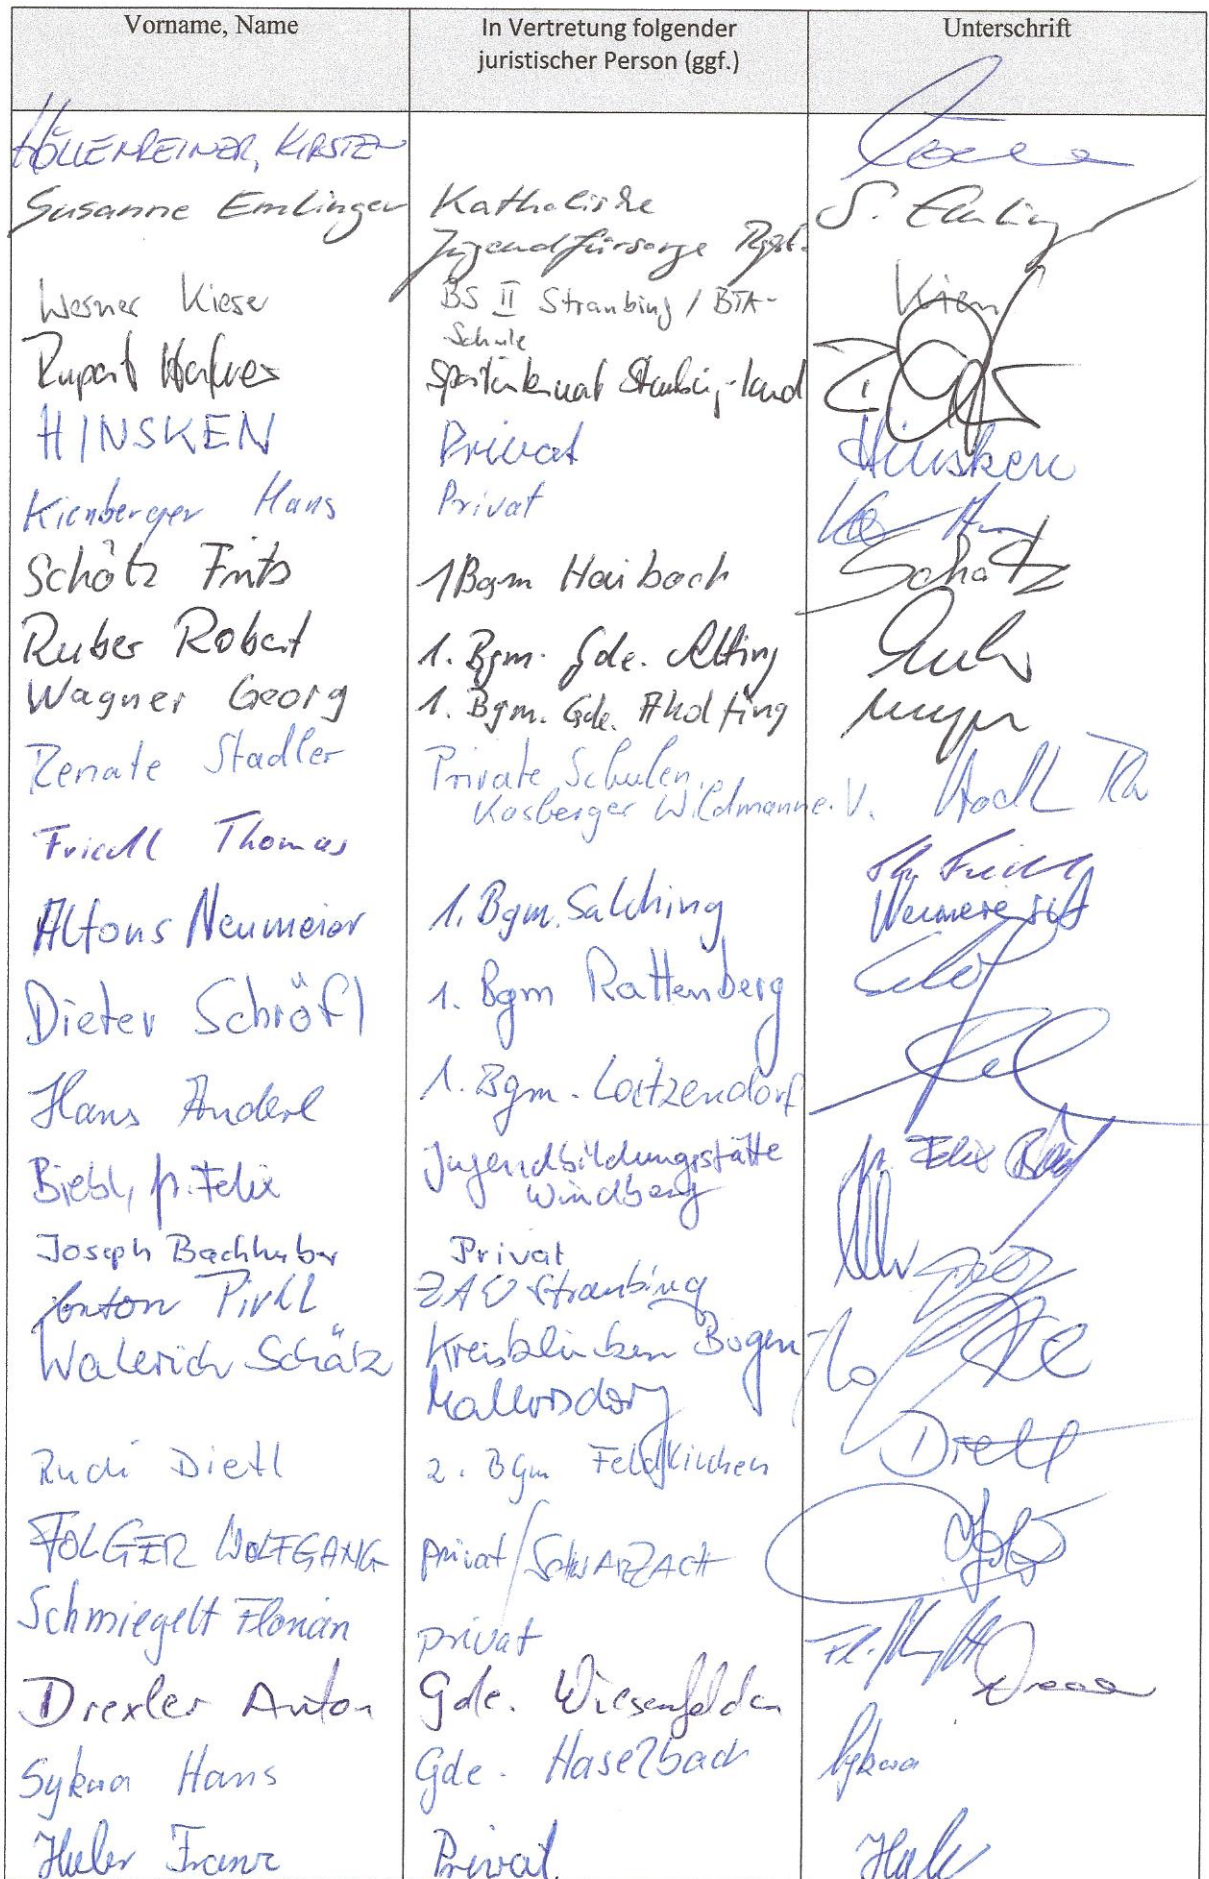 Vorname, Name In Vertretung folgender juristischer Person (ggf.) Unterschrift
HÖLLENREINER, KIRSTEN
Susanne Emlinger Katholische S. Emling
Jugendfürsorge Rgbt.
Werner Kieser BS II Straubing / BTA-
Schule
Rupert Hafner
HINSKEN Privat Hinsken
Kienberger Hans Privat
Schötz Fritz 1 Bgm Haibach Schötz
Ruber Robert 1. Bgm. Gde. Aiting
Wagner Georg 1. Bgm. Gde. Aholfing
Renate Stadler Private Schulen,
Kasberger Wildmann e.V.
Friedl Thomas Th. Friedl
Alfons Neumeier 1. Bgm. Salching
Dieter Schröfl 1. Bgm Rattenberg
Hans Anderl 1. Bgm. Loitzendorf
Biebl, p. Felix Jugendbildungsstätte p. Felix Biebl
Windberg
Joseph Bachhuber Privat
Anton Pirkl ZAW Straubing
Walerich Schätz Kreiskliniken Bogen
Mallersdorf
Rudi Dietl 2. Bgm Feldkirchen Dietl
FOLGER WOLFGANG privat/SCHWARZACH
Schmiegelt Florian privat
Drexler Anton Gde. Wiesenfelden
Sykora Hans Gde. Haselbach Sykora
Huber Franz Privat.